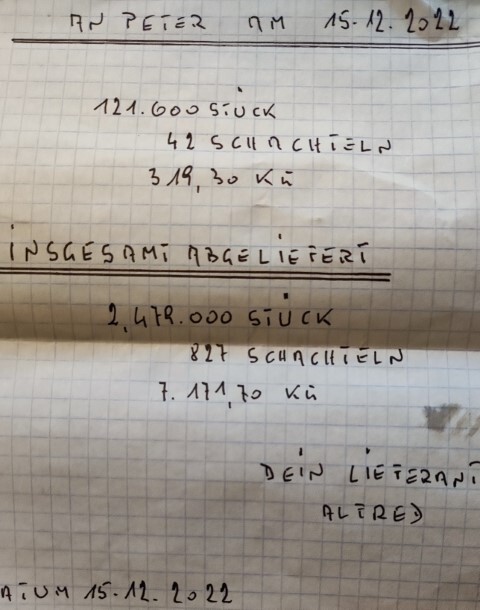 AN PETER AM 15.12.2022
121.600 STÜCK
42 SCHACHTELN
319,30 Kü
INSGESAMT ABGELIEFERT
2,479.000 STÜCK
827 SCHACHTELN
7.171,70 Kü
DEIN LIEFERANT
ALFRED
ATUM 15.12.2022